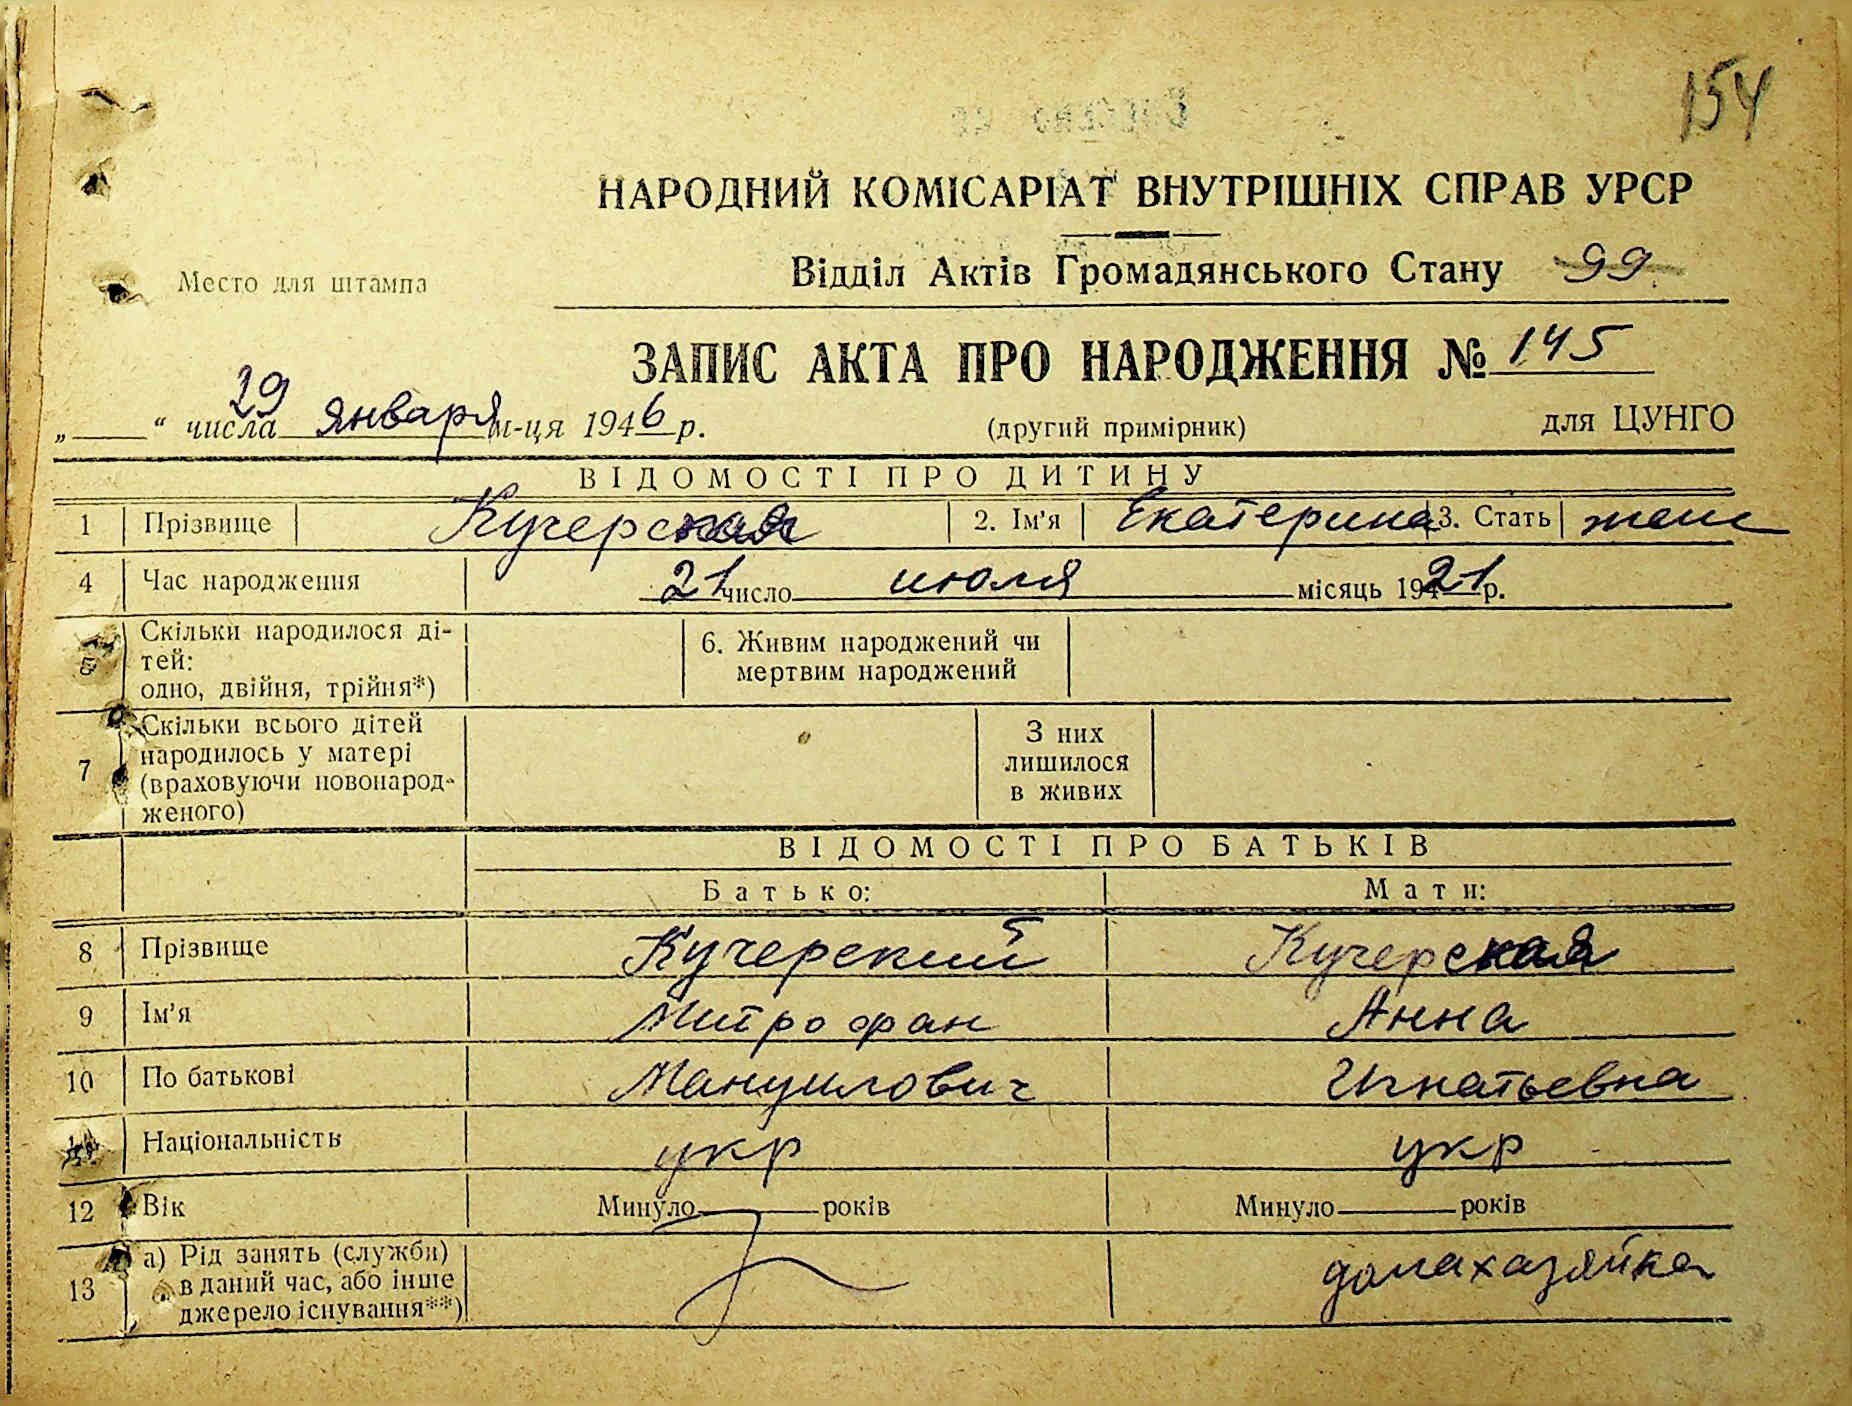 154
НАРОДНИЙ КОМІСАРІАТ ВНУТРІШНІХ СПРАВ УРСР
Место для штампа
Відділ Актів Громадянського Стану 99
ЗАПИС АКТА ПРО НАРОДЖЕННЯ № 145
„ “ 29 числа января м-ця 1946 р. (другий примірник) для ЦУНГО
ВІДОМОСТІ ПРО ДИТИНУ
1 Прізвище Кучерская 2. Ім'я Екатерина 3. Стать женс
4 Час народження 21 число июля місяць 1921 р.
5 Скільки народилося ді-
тей:
одно, двійня, трійня*)
6. Живим народжений чи
мертвим народжений
7 Скільки всього дітей
народилось у матері
(враховуючи новонарод-
женого)
З них
лишилося
в живих
ВІДОМОСТІ ПРО БАТЬКІВ
Батько: Мати:
8 Прізвище Кучерский Кучерская
9 Ім'я Митрофан Анна
10 По батькові Мануилович Игнатьевна
11 Національність укр укр
12 Вік Минуло років Минуло років
13 а) Рід занять (служби)
в даний час, або інше
джерело існування**)
домахазяйка